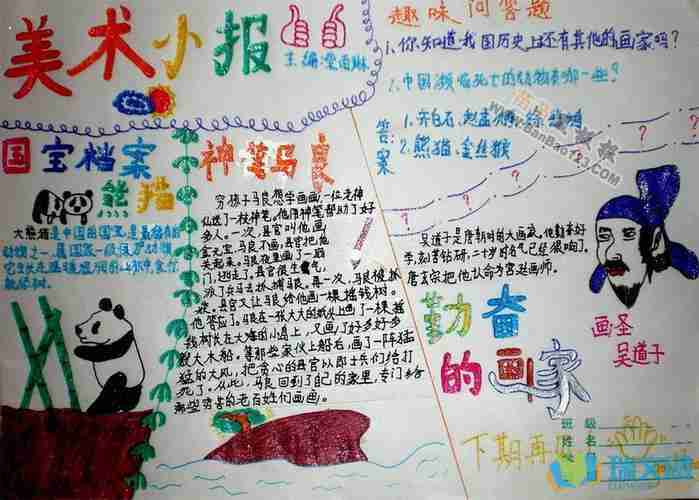 美术小报
主编:梁雨琳
趣味问答题
1.你知道我国历史上还有其他的画家吗?
2.中国濒临死亡的动物有哪一些?
答案
1.齐白石、赵孟頫、徐悲鸿
2.熊猫、金丝猴
国宝档案
熊猫
大熊猫是中国的国宝,是最稀有的
动物之一,属国家一级保护动物,
它生长在
神笔马良
穷孩子马良想学画画,一位老神
仙送了一枝神笔。他用神笔帮助了好
多人。一次,县官叫他画
金元宝,马良不画,县官把他
关起来。马良夜里画了一扇
门,逃走了。县官很生气,
派了兵马去抓捕马良。再一次,马良被抓
后。县官又让马良给他画一棵摇钱树。
他答应了。马良在一张大大的纸头上画了一棵摇
钱树长在大海的小岛上,又画了好多好多
艘大木船。等那些家伙上船后,画了一阵猛
猛的大风,把贪心的县官以即士兵们给打
死了。从此,马良回到了自己的家里,专门给
那些穷苦的老百姓们画画。
吴道子是唐朝时的大画家。他勤奋好
学,刻苦钻研,二十岁时名气已经很响了。
唐玄宗把他认命为宫廷画师。
勤奋
的画家
画圣
吴道子
班级
姓名
下期再见
www.banbao123.com